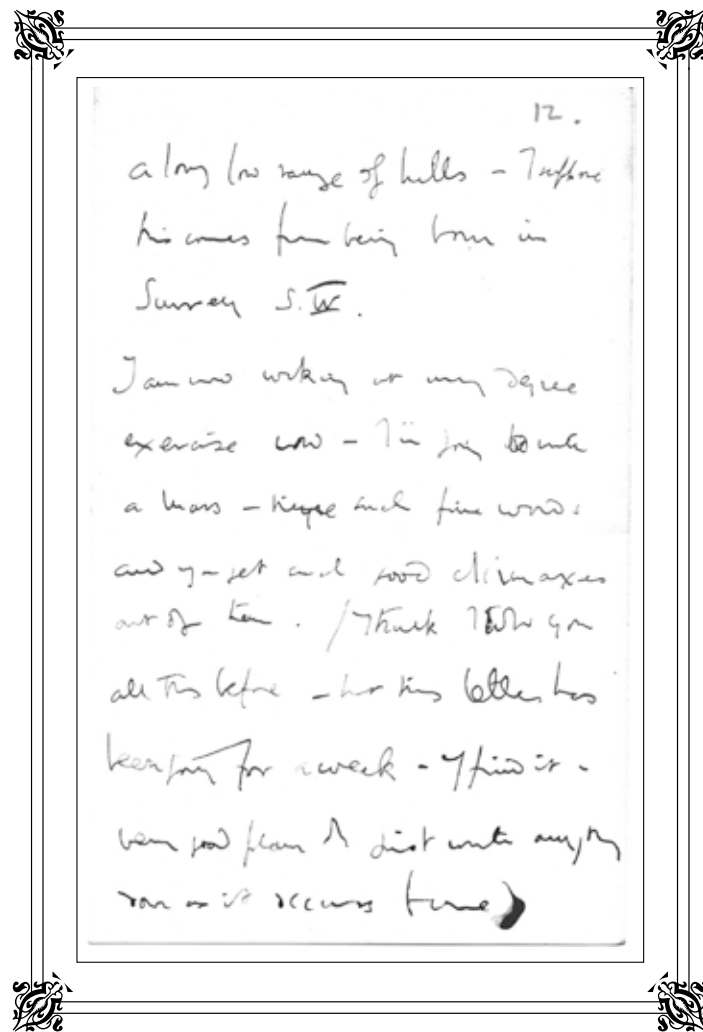 12.
a long low range of hills – I suppose
this comes from being born in
Surrey S.W.
I am now working at my degree
exercise now – I'm going to write
a Mass – these are such fine words
and you get such good climaxes
out of them. (I think I told you
all this before – but this letter has
been going for a week – I find it a
very good plan to just write anything
down as it occurs to me)